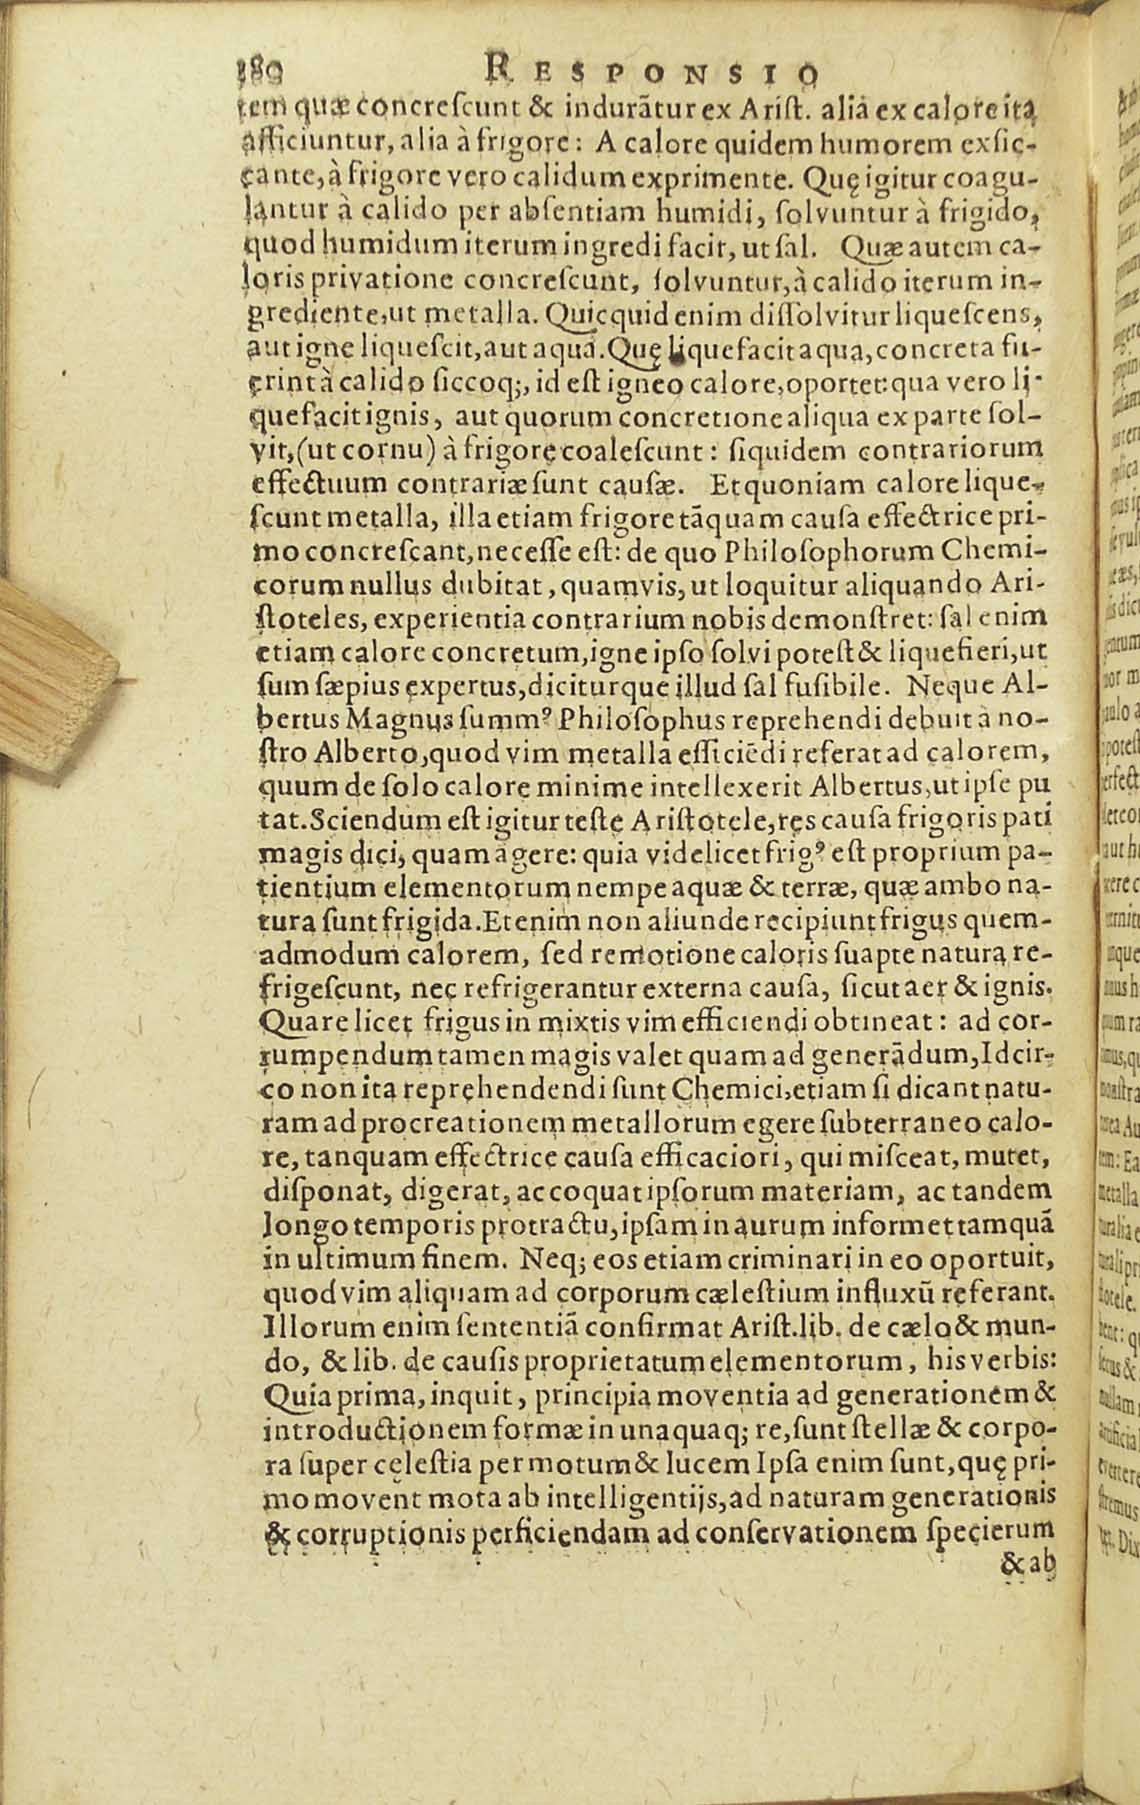 180 RESPONSIO
tem quæ concreſcunt & indurãtur ex Ariſt. alia ex calore ita
afficiuntur, alia à frigore: A calore quidem humorem exſic-
cante, à frigore vero calidum exprimente. Quę igitur coagu-
lantur à calido per abſentiam humidi, ſolvuntur à frigido,
quod humidum iterum ingredi facit, ut ſal. Quæ autem ca-
loris privatione concreſcunt, ſolvuntur, à calido iterum in-
grediente, ut metalla. Quicquid enim diſſolvitur liqueſcens,
aut igne liqueſcit, aut aqua. Quę liquefacit aqua, concreta fu-
erint à calido ſiccoq;, id eſt igneo calore, oportet: qua vero li-
quefacit ignis, aut quorum concretione aliqua ex parte ſol-
vit, (ut cornu) à frigore coaleſcunt: ſiquidem contrariorum
effectuum contrariæ ſunt cauſæ. Et quoniam calore lique-
ſcunt metalla, illa etiam frigore tãquam cauſa effectrice pri-
mo concreſcant, neceſſe eſt: de quo Philoſophorum Chemi-
corum nullus dubitat, quamvis, ut loquitur aliquando Ari-
ſtoteles, experientia contrarium nobis demonſtret: ſal enim
etiam calore concretum, igne ipſo ſolvi poteſt & liquefieri, ut
ſum ſæpius expertus, diciturque illud ſal fuſibile. Neque Al-
bertus Magnus ſummꝰ Philoſophus reprehendi debuit à no-
ſtro Alberto, quod vim metalla efficiẽdi referat ad calorem,
quum de ſolo calore minime intellexerit Albertus, ut ipſe pu
tat. Sciendum eſt igitur teſte Ariſtotele, res cauſa frigoris pati
magis dici, quam agere: quia videlicet frigꝰ eſt proprium pa-
tientium elementorum nempe aquæ & terræ, quæ ambo na-
tura ſunt frigida. Etenim non aliunde recipiunt frigus quem-
admodum calorem, ſed remotione caloris ſuapte natura re-
frigeſcunt, nec refrigerantur externa cauſa, ſicut aer & ignis.
Quare licet frigus in mixtis vim efficiendi obtineat: ad cor-
rumpendum tamen magis valet quam ad generãdum, Idcir-
co non ita reprehendendi ſunt Chemici, etiam ſi dicant natu-
ram ad procreationem metallorum egere ſubterraneo calo-
re, tanquam effectrice cauſa efficaciori, qui miſceat, mutet,
diſponat, digerat, ac coquat ipſorum materiam, ac tandem
longo temporis protractu, ipſam in aurum informet tamquã
in ultimum finem. Neq; eos etiam criminari in eo oportuit,
quod vim aliquam ad corporum cæleſtium influxũ referant.
Illorum enim ſententiã confirmat Ariſt. lib. de cælo & mun-
do, & lib. de cauſis proprietatum elementorum, his verbis:
Quia prima, inquit, principia moventia ad generationem &
introductionem formæ in unaquaq; re, ſunt ſtellæ & corpo-
ra ſuper celeſtia per motum & lucem Ipſa enim ſunt, quę pri-
mo movent mota ab intelligentijs, ad naturam generationis
& corruptionis perficiendam ad conſervationem ſpecierum
& ab